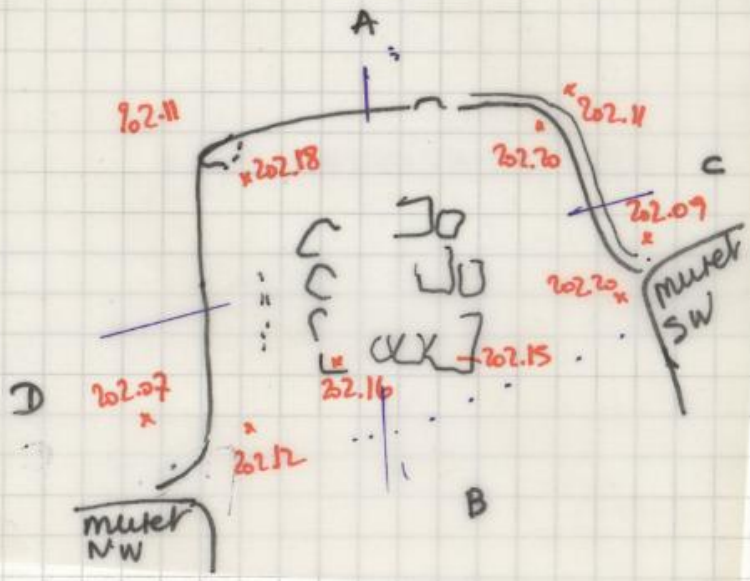 A
202.11
202.11
202.20
202.18
C
202.09
202.20
muret
SW
202.15
202.16
D
202.07
202.12
B
muret
NW